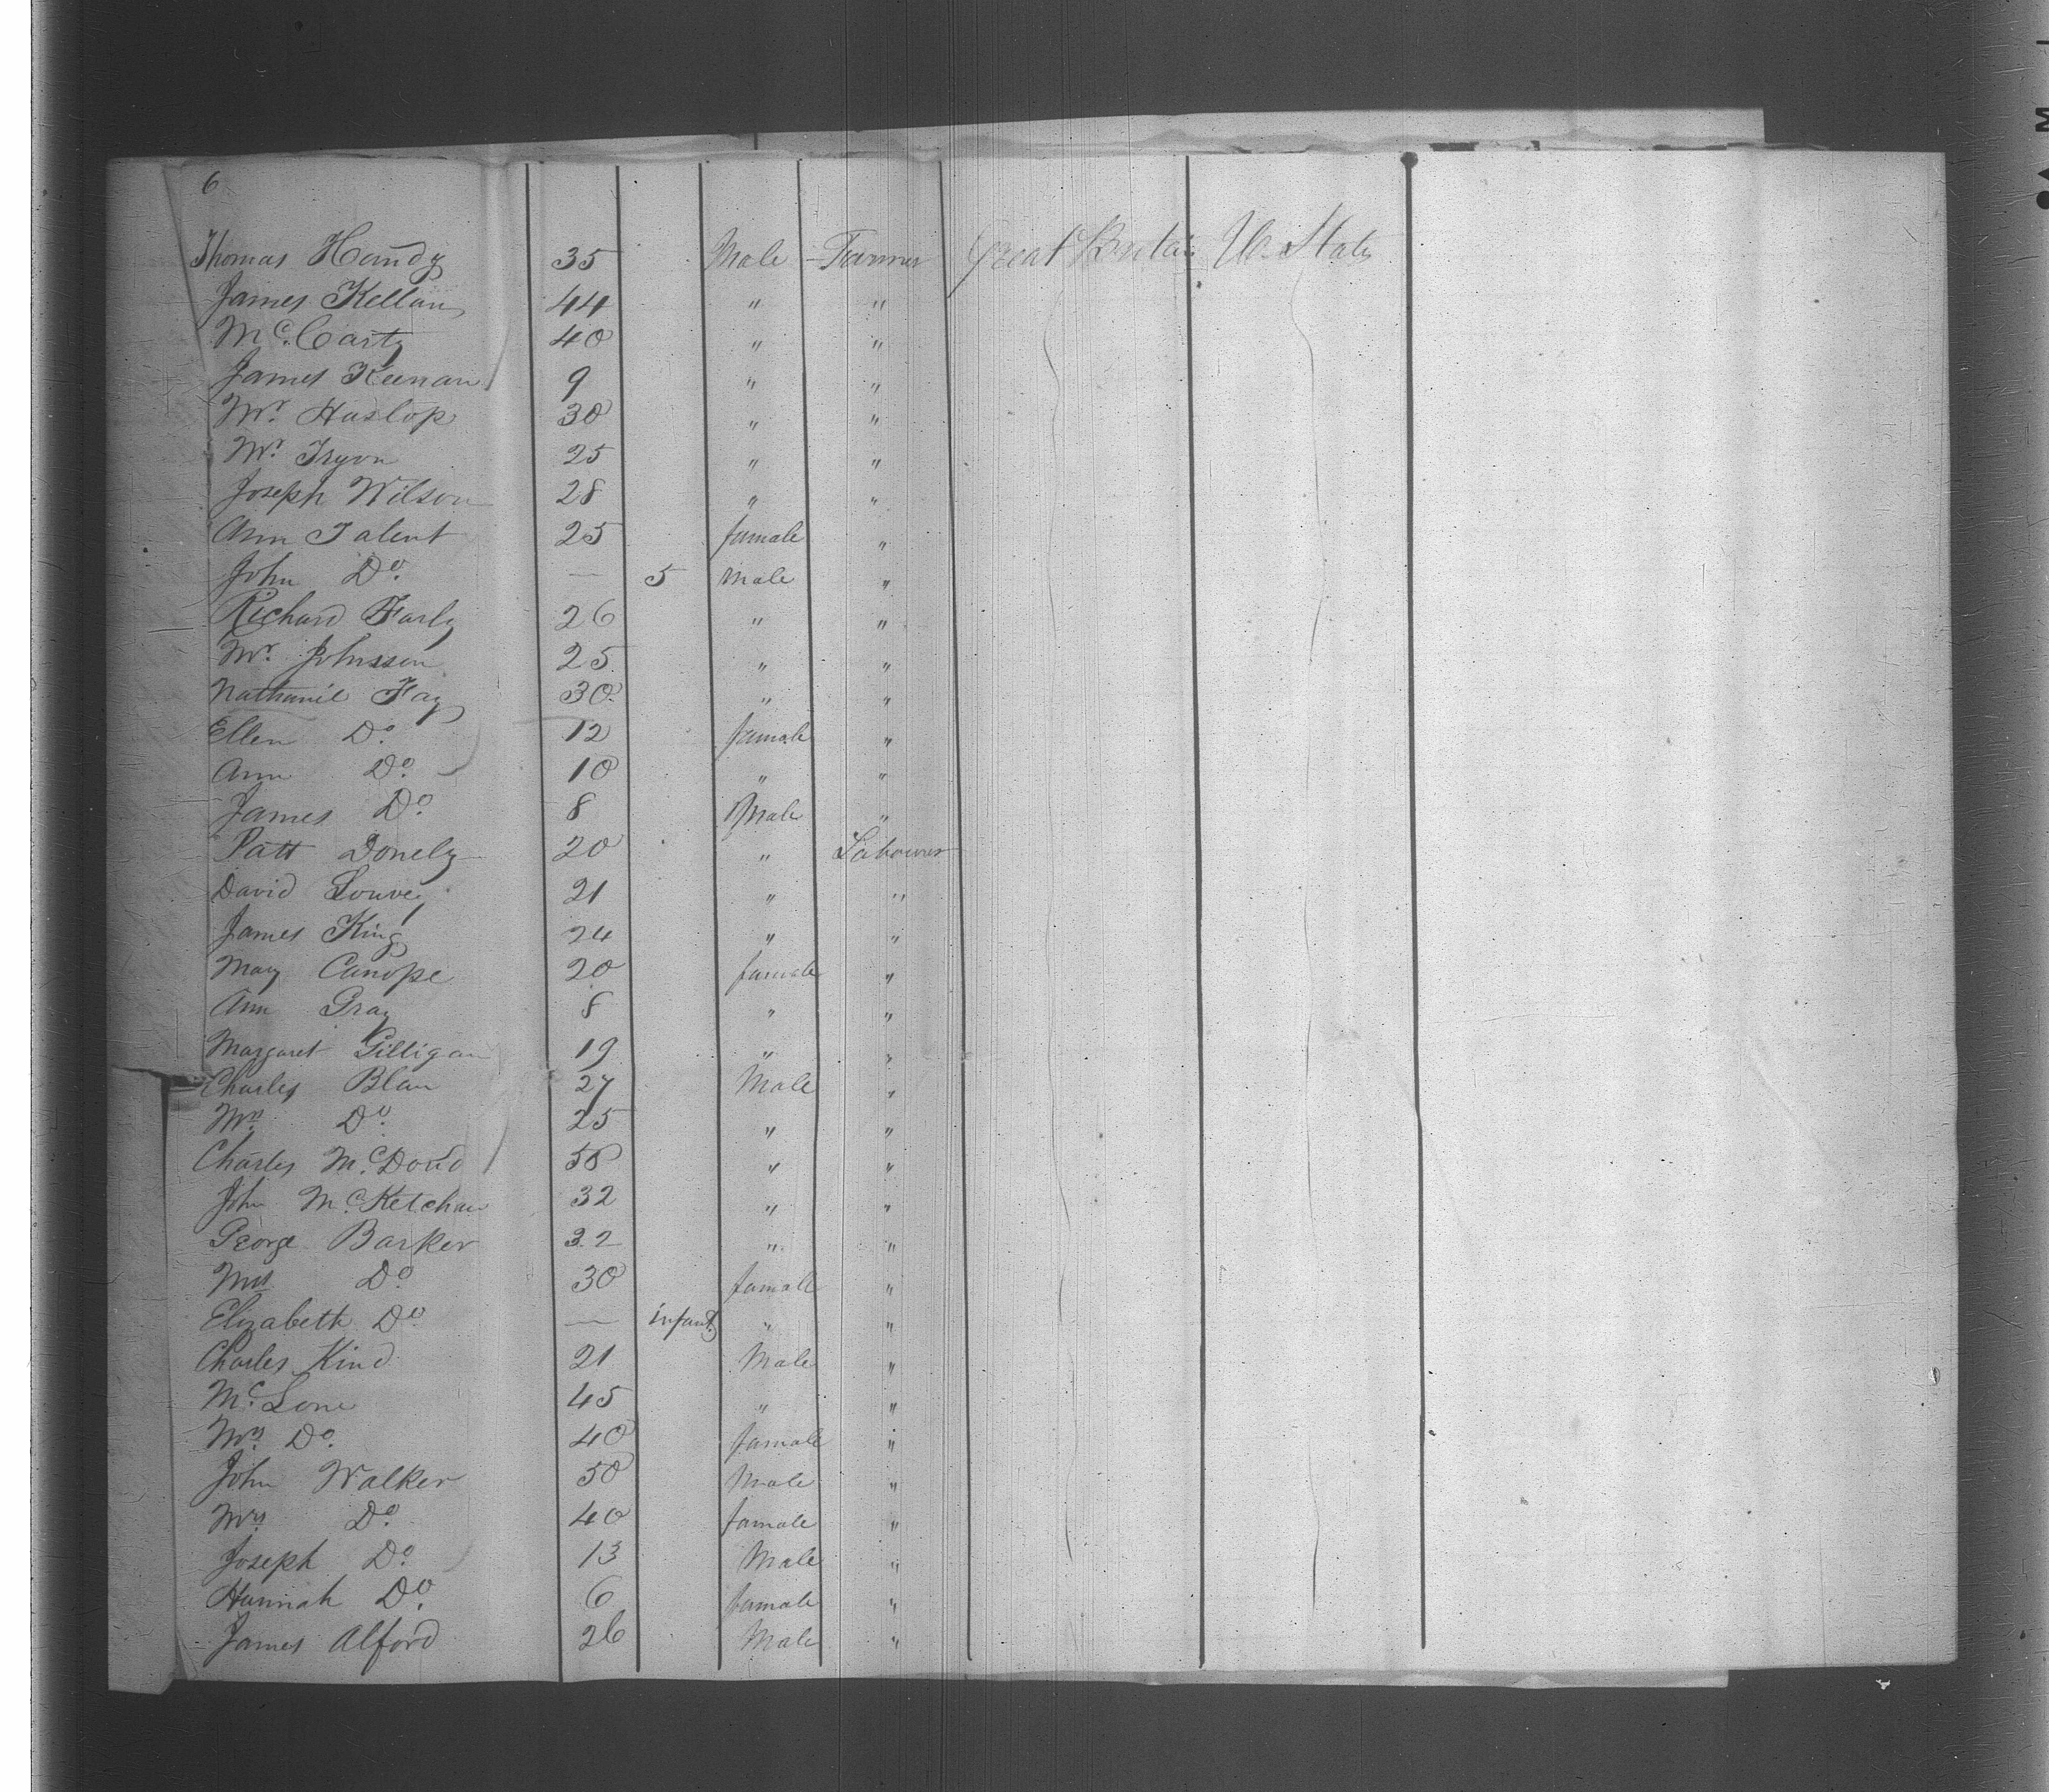 6
Thomas Handy 35 Male Farmer Great Britain U. States
James Kellan 44 " "
Mc. Carty 40 " "
James Keenan 9 " "
Mr. Haslop 30 " "
Mr. Tryon 25 " "
Joseph Wilson 28 " "
Ann Talent 25 famale "
John Do. — 5 Male "
Richard Farly 26 " "
Mr. Johnsson 25 " "
Nathanil Fay 30 " "
Ellen Do. 12 famale "
Ann Do. 10 " "
James Do. 8 Male "
Patt Donely 20 " Labourer
David 21 " "
James King 24 " "
Mary Canope 20 famale "
Ann Gray 8 " "
Margaret Gilligan 19 " "
Charles Blan 27 Male "
Do. 25 " "
Charles Mc. Doud 50 " "
John Mc. Ketchan 32 " "
George Barker 32 " "
Mrs Do. 30 famale "
Elizabeth Do. — infant " "
Charles Kind 21 Male "
Mc. Lone 45 " "
Mrs. Do. 40 famale "
John Walker 50 Male "
Mrs Do. 40 famale "
Joseph Do. 13 Male "
Hannah Do. 6 famale "
James Alford 26 Male "